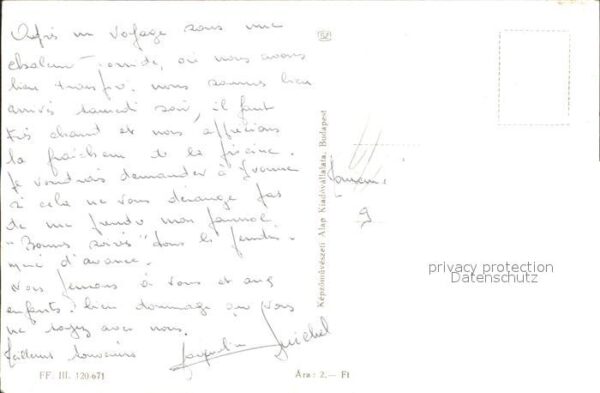 Après un voyage sous une
chaleur torride, où nous avons
bien transpiré, nous sommes bien
arrivés samedi soir, il fait
très chaud et nous apprécions
la fraîcheur de la piscine.
Je voudrais demander à Yvonne
si cela ne vous dérange pas
de me prendre mon journal
"Bonnes soirées" dans le
d'avance.
Nous pensons à vous et aux
enfants. bien dommage que vous
ne soyez avec nous.
Meilleurs souvenirs Jacqueline Michel
FF. III. 120-671
Ára: 2.— Ft
Képzőművészeti Alap Kiadóvállalata, Budapest
privacy protection
Datenschutz